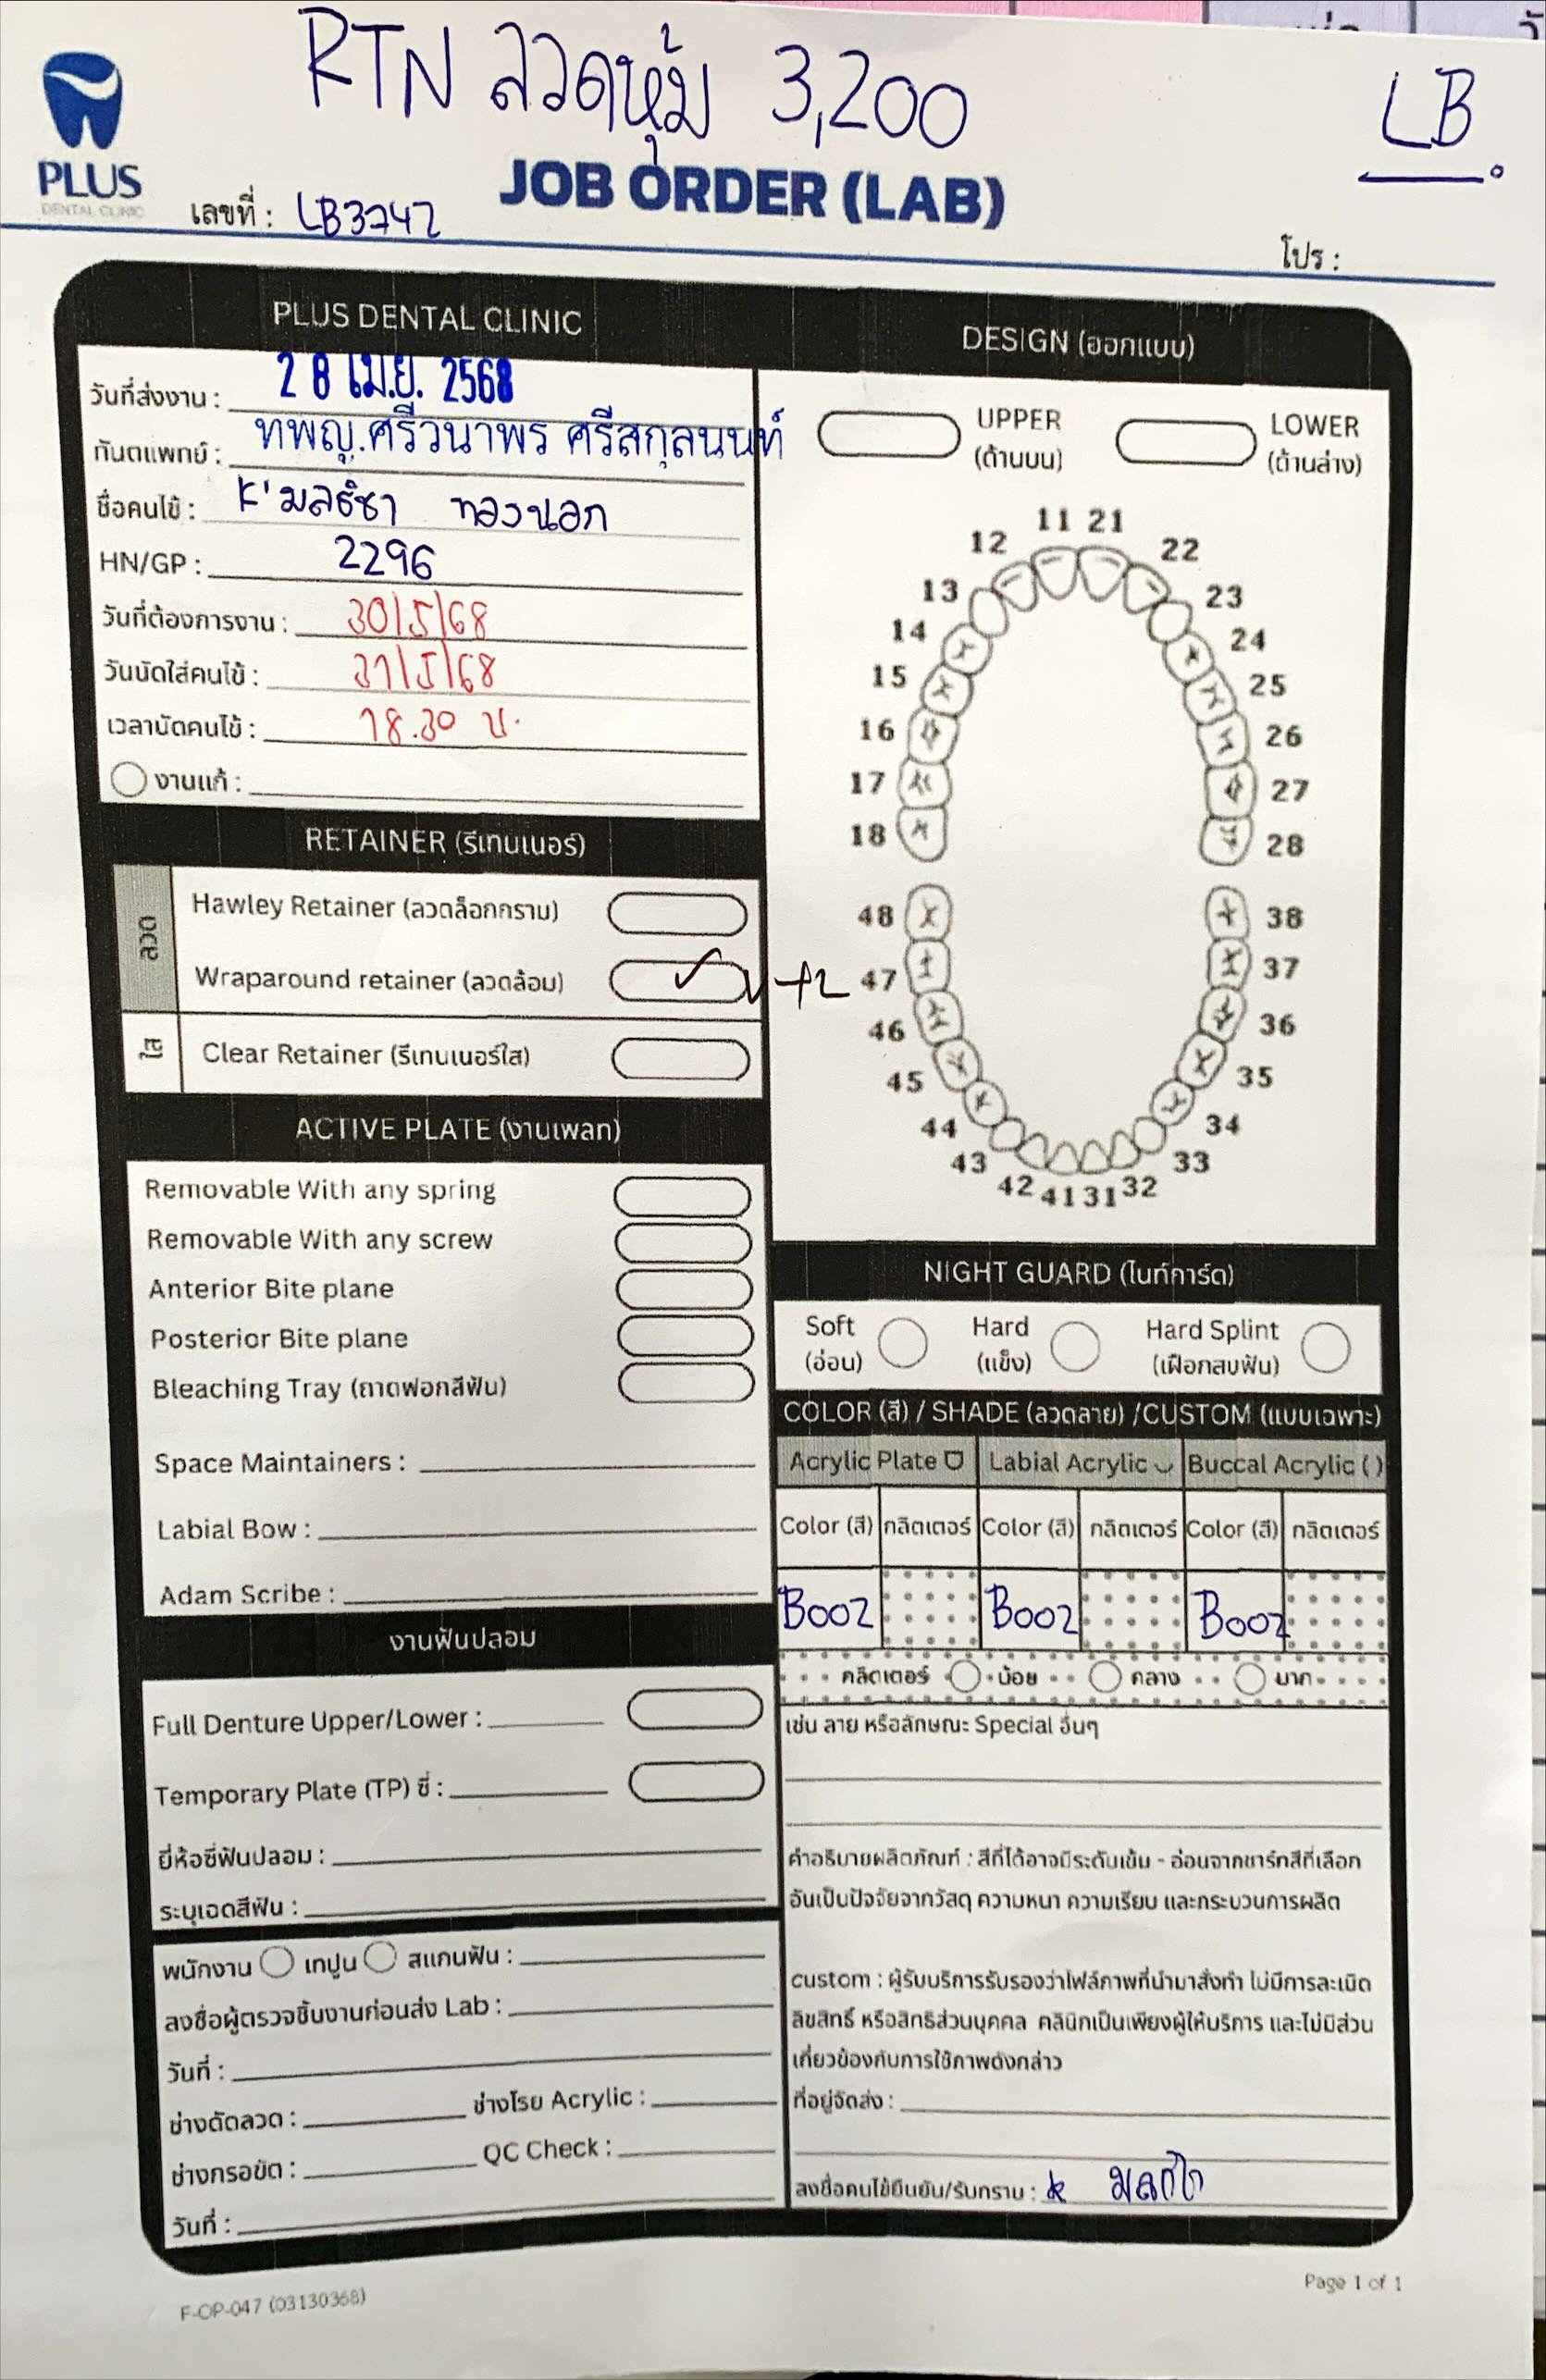 RTN ลวดหุ้ม 3,200
LB
PLUS
DENTAL CLINIC
JOB ORDER (LAB)
เลขที่ : LB3742
โปร :
PLUS DENTAL CLINIC
วันที่ส่งงาน : 28 เม.ย. 2568
ทันตแพทย์ : ทพญ.ศรีวนาพร ศรีสกุลนนท์
ชื่อคนไข้ : K'มลธิชา ทองนอก
HN/GP : 2296
วันที่ต้องการงาน : 30/5/68
วันนัดใส่คนไข้ : 31/5/68
เวลานัดคนไข้ : 18.30 น.
งานแก้ :
RETAINER (รีเทนเนอร์)
ลวด
Hawley Retainer (ลวดล็อกกราม)
Wraparound retainer (ลวดล้อม) ✓
ใส
Clear Retainer (รีเทนเนอร์ใส)
ACTIVE PLATE (งานเพลท)
Removable With any spring
Removable With any screw
Anterior Bite plane
Posterior Bite plane
Bleaching Tray (ถาดฟอกสีฟัน)
Space Maintainers :
Labial Bow :
Adam Scribe :
งานฟันปลอม
Full Denture Upper/Lower :
Temporary Plate (TP) ซี่ :
ยี่ห้อซี่ฟันปลอม :
ระบุเฉดสีฟัน :
พนักงาน เทปูน สแกนฟัน :
ลงชื่อผู้ตรวจชิ้นงานก่อนส่ง Lab :
วันที่ :
ช่างดัดลวด : ช่างโรย Acrylic :
ช่างกรอขัด : QC Check :
วันที่ :
DESIGN (ออกแบบ)
UPPER LOWER
(ด้านบน) (ด้านล่าง)
11 21
12 22
13 23
14 24
15 25
16 26
17 27
18 28
48 38
47 37
46 36
45 35
44 34
43 33
42 41 31 32
NIGHT GUARD (ไนท์การ์ด)
Soft Hard Hard Splint
(อ่อน) (แข็ง) (เฝือกสบฟัน)
COLOR (สี) / SHADE (ลวดลาย) /CUSTOM (แบบเฉพาะ)
Acrylic Plate Labial Acrylic Buccal Acrylic ( )
Color (สี) กลิตเตอร์ Color (สี) กลิตเตอร์ Color (สี) กลิตเตอร์
B002 B002 B002
กลิตเตอร์ น้อย กลาง มาก
เช่น ลาย หรือลักษณะ Special อื่นๆ
คำอธิบายผลิตภัณฑ์ : สีที่ได้อาจมีระดับเข้ม - อ่อนจากชาร์ทสีที่เลือก
อันเป็นปัจจัยจากวัสดุ ความหนา ความเรียบ และกระบวนการผลิต
custom : ผู้รับบริการรับรองว่าไฟล์ภาพที่นำมาสั่งทำ ไม่มีการละเมิด
ลิขสิทธิ์ หรือสิทธิส่วนบุคคล คลินิกเป็นเพียงผู้ให้บริการ และไม่มีส่วน
เกี่ยวข้องกับการใช้ภาพดังกล่าว
ที่อยู่จัดส่ง :
ลงชื่อคนไข้ยืนยัน/รับทราบ :
F-OP-047 (03130368)
Page 1 of 1